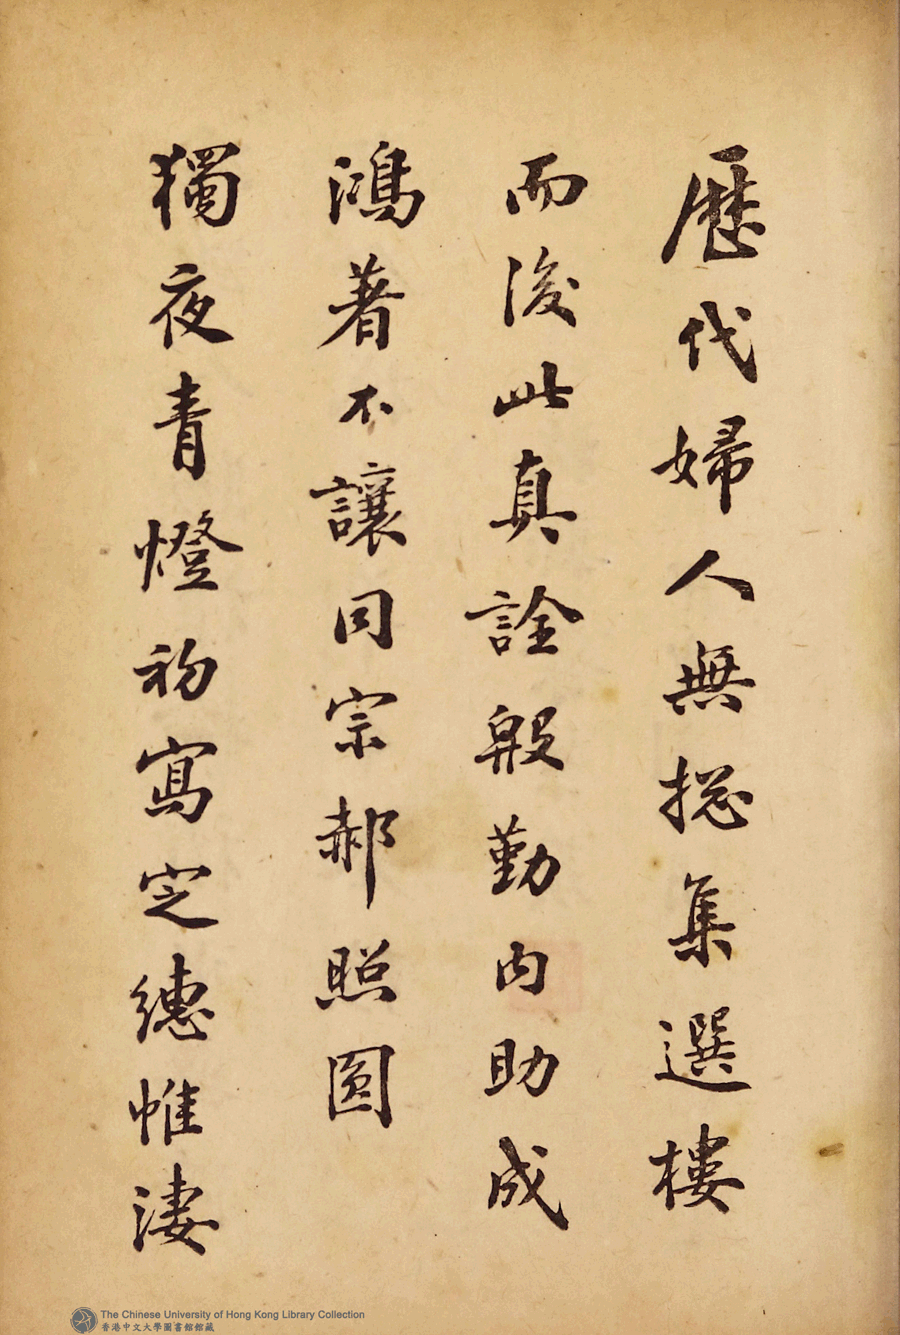 歷代婦人無捴集選樓
而後此真詮般勤內助成
鴻著不讓同宗郝照圓
獨夜青燈初寫定繐帷淒
The Chinese University of Hong Kong Library Collection
香港中文大學圖書館館藏